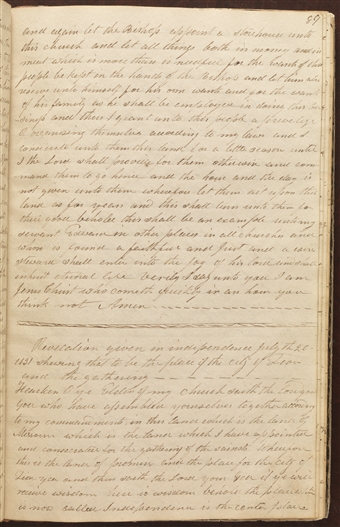 89
and again let the Bishop appoint a storehouse unto
this church and let all things both in money and in
meat which is more than is needful for the want of this
people be kept in the hands of the Bishop and let him also
reserve unto himself for his own wants and for the wants
of his family as he shall be employed in doing this bu
siness and thus I grant unto this people a privelege
of organising themselves according to my laws and I
consecrate unto them this land for a little season until
I the Lord shall provide for them otherwise and com
mand them to go hence and the hour and the day is
not given unto them wherefore let them act upon this
land as for years and this shall turn unto them for
their good behold this shall be an example unto my
servant Edward in other places in all churches and
whoso is found a faithful and Just and a wise
steward shall enter into the Joy of his lord and shall
inherit eternal life verily I say unto you I am
Jesus Christ who cometh quickly in an hour you
think not Amen
Revelation given in independence July th 20
1831 shewing that to be the place of the city of Zion
and the gathering
Hearken O ye Elders of my church saith the Lord your God
you who have assembled yourselves together according
to my commandments in this land which is the land of
Missouri which is the land which I have appointed
and consecrated for the gathering of the saints Wherefore
this is the land of promise and the place for the city of
Zion yea and thus saith the Lord your God if ye will
receive wisdom here is wisdom behold the place which
is now called Independence is the center place